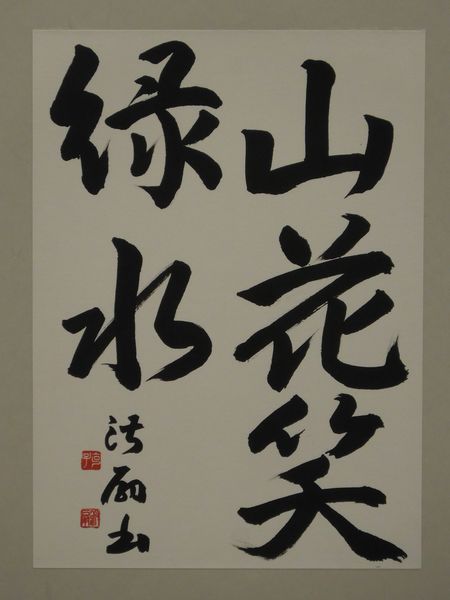 山花笑
緑水